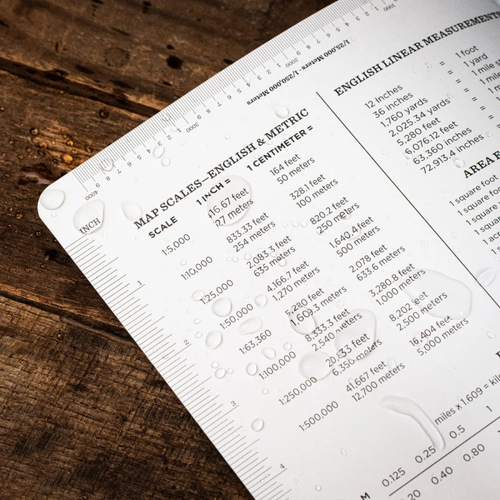 1/25,000 Meters 1/250,000 Meters
INCH
MAP SCALES—ENGLISH & METRIC
SCALE 1 INCH = 1 CENTIMETER =
1:5,000 416.67 feet 164 feet
127 meters 50 meters
1:10,000 833.33 feet 328.1 feet
254 meters 100 meters
1:25,000 2,083.3 feet 820.2 feet
635 meters 250 meters
1:50,000 4,166.7 feet 1,640.4 feet
1,270 meters 500 meters
1:63,360 5,280 feet 2,078 feet
1,609.3 meters 633.6 meters
1:100,000 8,333.3 feet 3,280.8 feet
2,540 meters 1,000 meters
1:250,000 20,833 feet 8,202 feet
6,350 meters 2,500 meters
1:500,000 41,667 feet 16,404 feet
12,700 meters 5,000 meters
1
2
3
4
ENGLISH LINEAR MEASUREMENTS
12 inches = 1 foot
36 inches = 1 yard
1,760 yards = 1 mile
2,025.34 yards = 1
5,280 feet = 1 mile
6,076.12 feet = 1
63,360 inches = 1
72,913.4 inches =
AREA
1 square foot
1 square yard
1 square
1 square
miles x 1.609 =
0.125 0.25 0.5 1
0.20 0.40 0.80